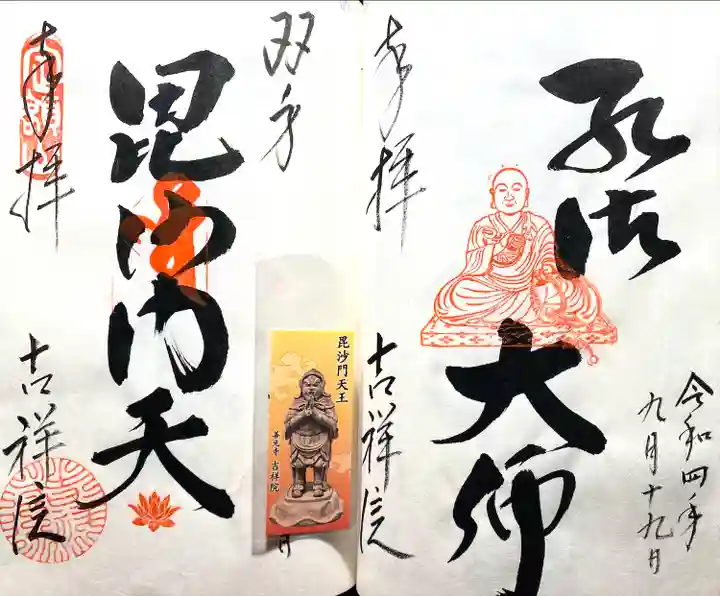 弘法大師
令和四年
九月十九日
奉拝
吉祥院
双身
毘沙門天
奉拝
吉祥院
毘沙門天王
善光寺 吉祥院